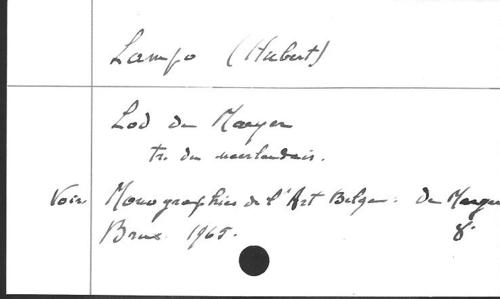 Lampo (Hubert)
Lod de Maeyer
tr. du neerlandais.
Voir Monographies de l'Art Belge. De Maeyer
Brux. 1965. 8°